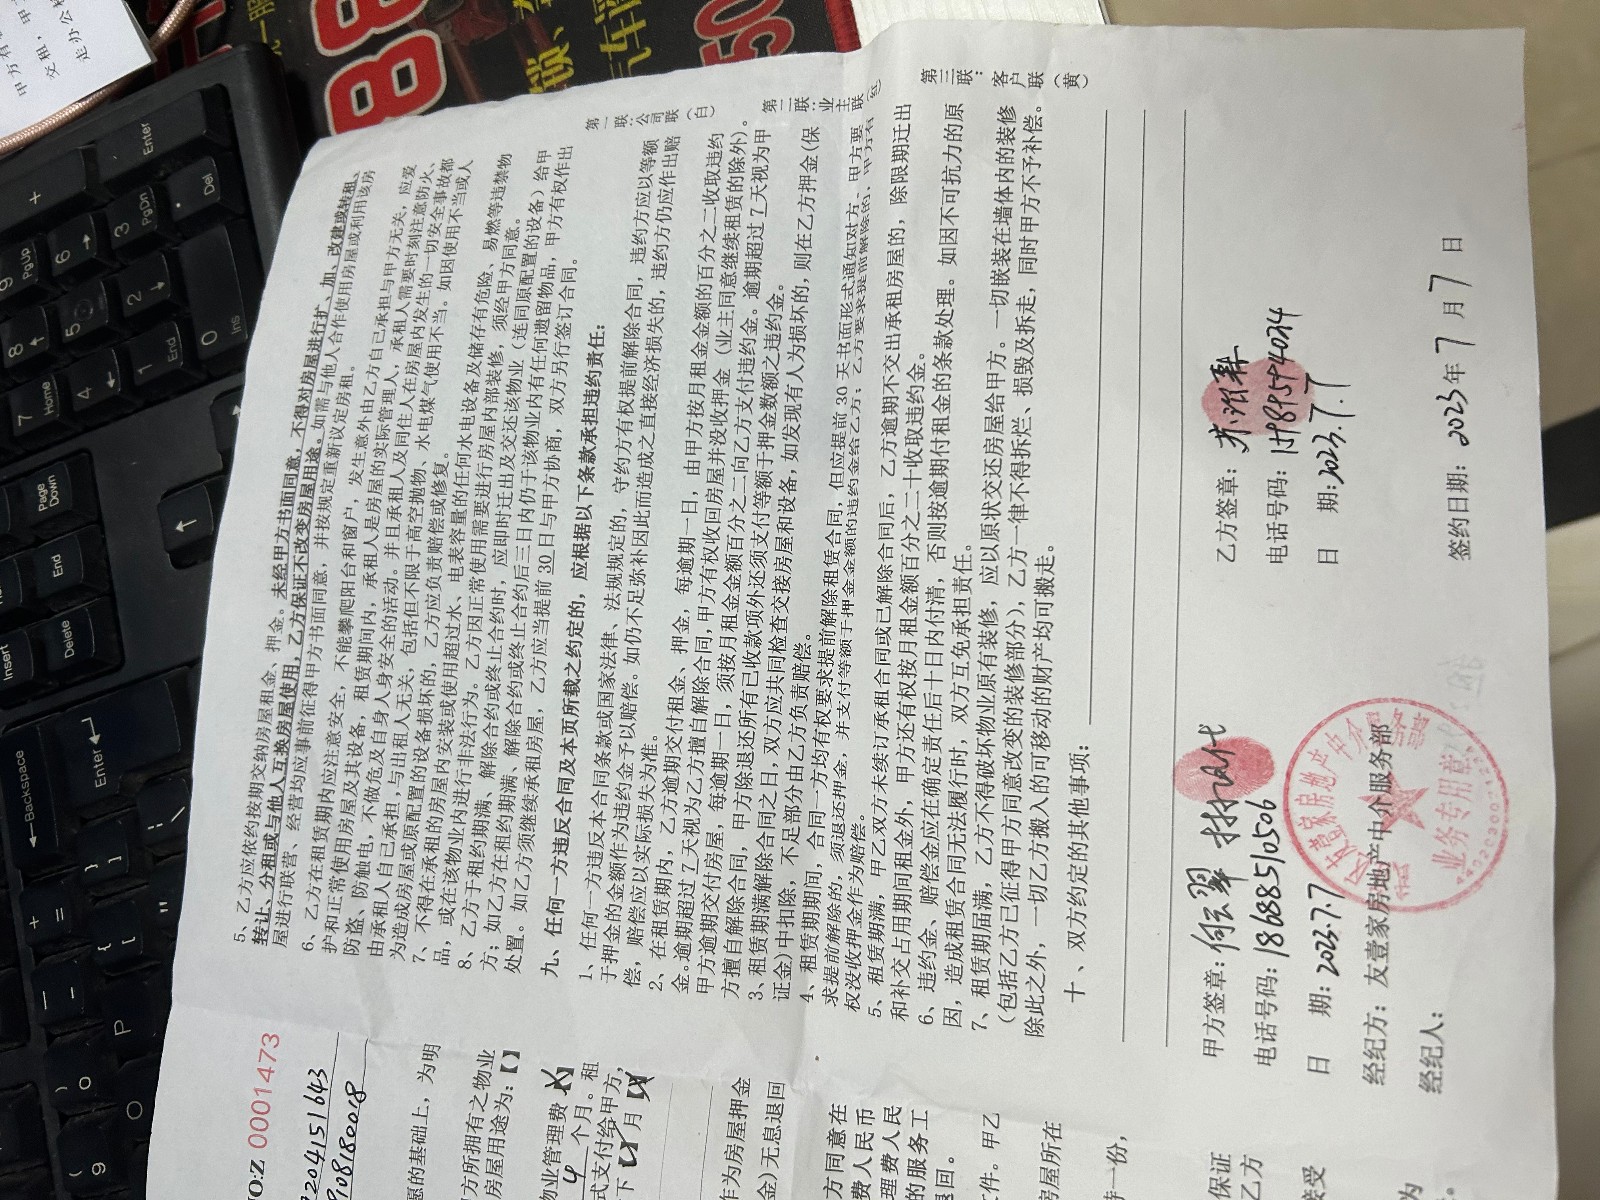 5、乙方应依约按期交纳房屋租金、押金。未经甲方书面同意，不得对房屋进行扩、加、改建或转租、
转让、分租或与他人互换房屋使用，乙方保证不改变房屋用途。如需与他人合作使用房屋或利用该房
屋进行联营、经营均应事前征得甲方书面同意，并按规定重新议定房租。
6、乙方在租赁期内应注意安全，不能攀爬阳台和窗户，发生意外由乙方自己承担与甲方无关，应爱
护和正常使用房屋及其设备，租赁期间内，承租人是房屋的实际管理人，承租人需要时刻注意防火、
防盗、防触电，不做危及自身人身安全的活动。并且承租人及同住人在房屋内发生的一切安全事故都
由承租人自己承担，与出租人无关，包括但不限于高空抛物、水电煤气使用不当。如因使用不当或人
为造成房屋或原配置的设备损坏的，乙方应负责赔偿或修复。
7、不得在承租的房屋内安装或使用超过水、电表容量的任何水电设备及储存有危险、易燃等违禁物
品，或在该物业内进行非法行为。乙方因正常使用需要进行房屋内部装修，须经甲方同意。
8、乙方于租约期满、解除合约或终止合约时，应即时迁出及交还该物业（连同原配置的设备）给甲
方；如乙方在租约期满、解除合约或终止合约后三日内仍于该物业内有任何遗留物品，甲方有权作出
处置。如乙方须继续承租房屋，乙方应当提前 30 日与甲方协商，双方另行签订合同。
九、任何一方违反合同及本页所载之约定的，应根据以下条款承担违约责任：
1、任何一方违反本合同条款或国家法律、法规规定的，守约方有权提前解除合同，违约方应以等额
于押金的金额作为违约金予以赔偿。如仍不足弥补因此而造成之直接经济损失的，违约方仍应作出赔
偿，赔偿应以实际损失为准。
2、在租赁期内，乙方逾期交付租金、押金，每逾期一日，由甲方按月租金金额的百分之二收取违约
金。逾期超过 7 天视为乙方擅自解除合同，甲方有权收回房屋并没收押金（业主同意继续租赁的除外）。
甲方逾期交付房屋，每逾期一日，须按月租金金额百分之二向乙方支付违约金。逾期超过 7 天视为甲
方擅自解除合同，甲方除退还所有已收款项外还须支付等额于押金数额之违约金。
3、租赁期满解除合同之日，双方应共同检查交接房屋和设备，如发现有人为损坏的，则在乙方押金(保
证金)中扣除，不足部分由乙方负责赔偿。
4、租赁期期间，合同一方均有权要求提前解除租赁合同，但应提前 30 天书面形式通知对方，甲方要
求提前解除的，须退还押金，并支付等额于押金金额的违约金给乙方；乙方要求提前解除的，甲方有
权没收押金作为赔偿。
5、租赁期满，甲乙双方未续订承租合同或已解除合同后，乙方逾期不交出承租房屋的，除限期迁出
和补交占用期间租金外，甲方还有权按月租金额百分之二十收取违约金。
6、违约金、赔偿金应在确定责任后十日内付清，否则按逾期付租金的条款处理。如因不可抗力的原
因，造成租赁合同无法履行时，双方互免承担责任。
7、租赁期届满，乙方不得破坏物业原有装修，应以原状交还房屋给甲方。一切嵌装在墙体内的装修
（包括乙方已征得甲方同意改变的装修部分），乙方一律不得拆烂、损毁及拆走，同时甲方不予补偿。
除此之外，一切乙方搬入的可移动的财产均可搬走。
十、双方约定的其他事项：
甲方签章：何云翠
电话号码：18688510506
日 期：2023.7.7
经纪方：友壹家房地产中介服务部
经纪人：
乙方签章：
电话号码：
日 期：2023.7.7
签约日期：2023年7月7日
业务专用章
第一联：公司联（白）
第二联：业主联
第三联：客户联（黄）
NO:Z 0001473
愿的基础上，为明
方所拥有之物业
房屋用途为：【】
物业管理费
4 个月。租
式支付给甲方，
作为房屋押金
金）无息退回
方同意在
费人民币
理费人民
的服务工
退回。
文件。甲乙
房屋所在
保证
乙方
接受
Backspace
Enter
Insert
Delete
End
Page Down
7 Home
8
9 PgUp
4
5
6
1 End
2
3 PgDn
0 Ins
Del
+
Enter
O
P
88
50